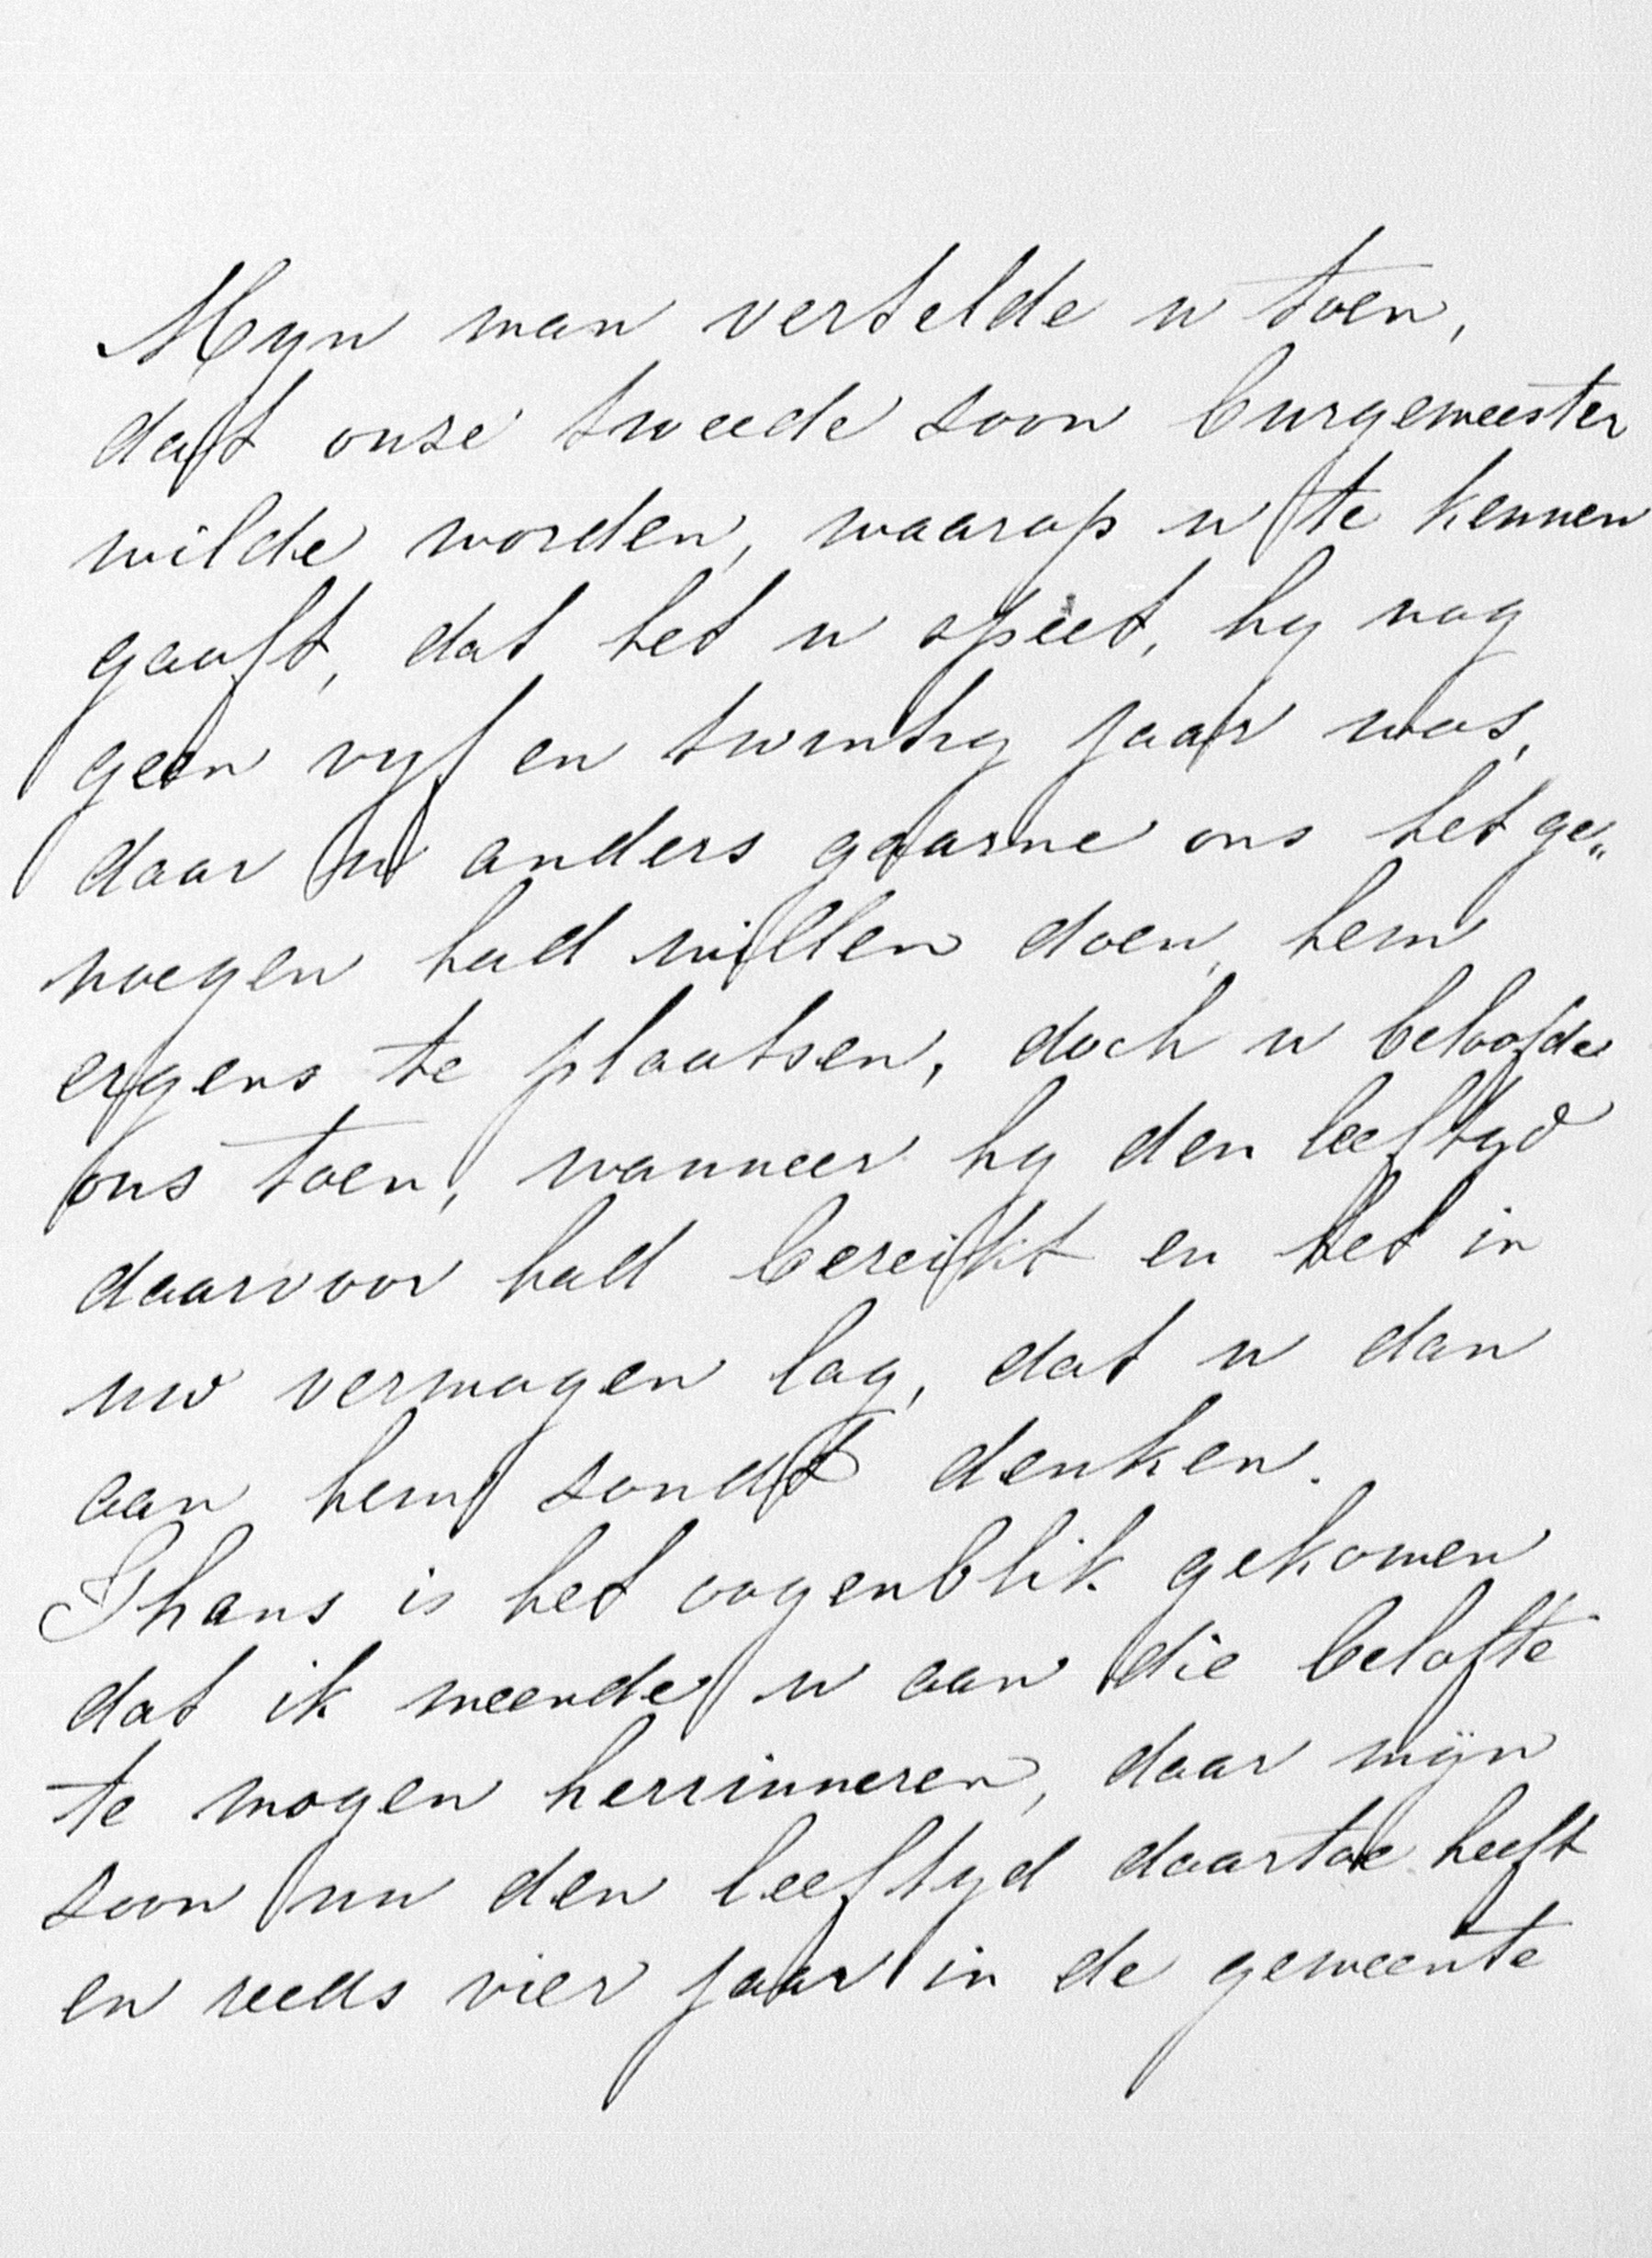 Myn man vertelde u toen,
dat onze tweede zoon burgemeester
wilde worden, waarop u te kennen
gaaft, dat het u speet, hy nog
geen vyf en twintig jaar was,
daar u anders gaarne ons het ge„
noegen had willen doen, hem
ergens te plaatsen, doch u beloofde
ons toen, wanneer hy den leeftyd
daarvoor had bereikt en het in
uw vermogen lag, dat u dan
aan hem zoudt denken.
Thans is het oogenblik gekomen
dat ik meende u aan die belofte
te mogen herrinneren, daar mijn
zoon nu den leeftyd daartoe heeft
en reeds vier jaar in de gemeente